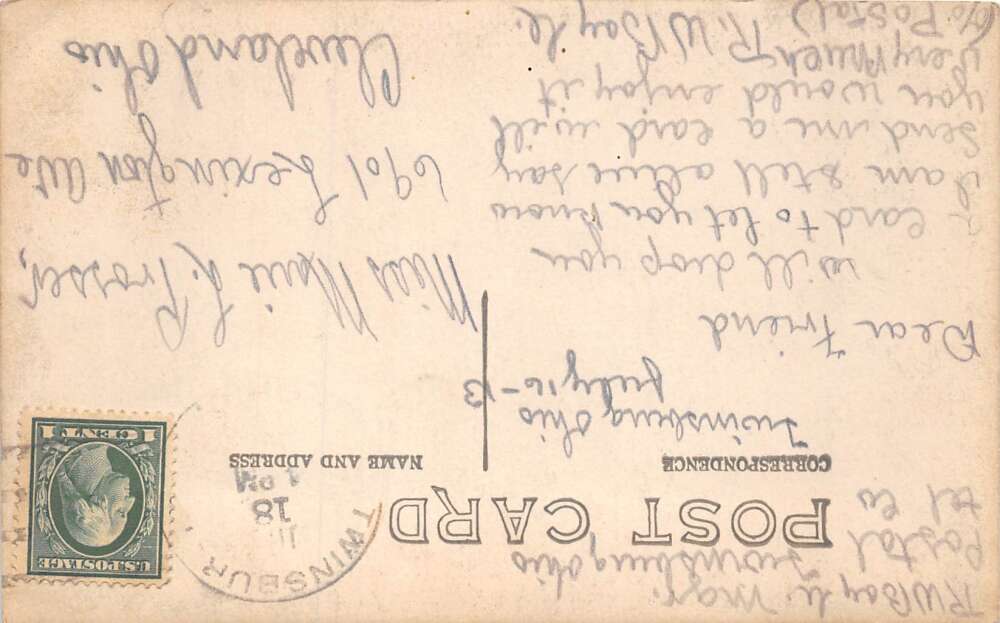 R W Boyle Mgr.
Postal Twinsburg Ohio
tel Co
POST CARD
CORRESPONDENCE
NAME AND ADDRESS
TWINSBUR
18
1 PM
U.S. POSTAGE
1 CENT 1
Twinsburg Ohio
July 16-13
Dear Friend
will drop you
a card to let you know
I am still alive say
send me a card will
you would enjoy it
very much R. W Boyle.
(c/o Postal)
Miss Marie L. Prosser,
6901 Lexington Ave
Cleveland Ohio